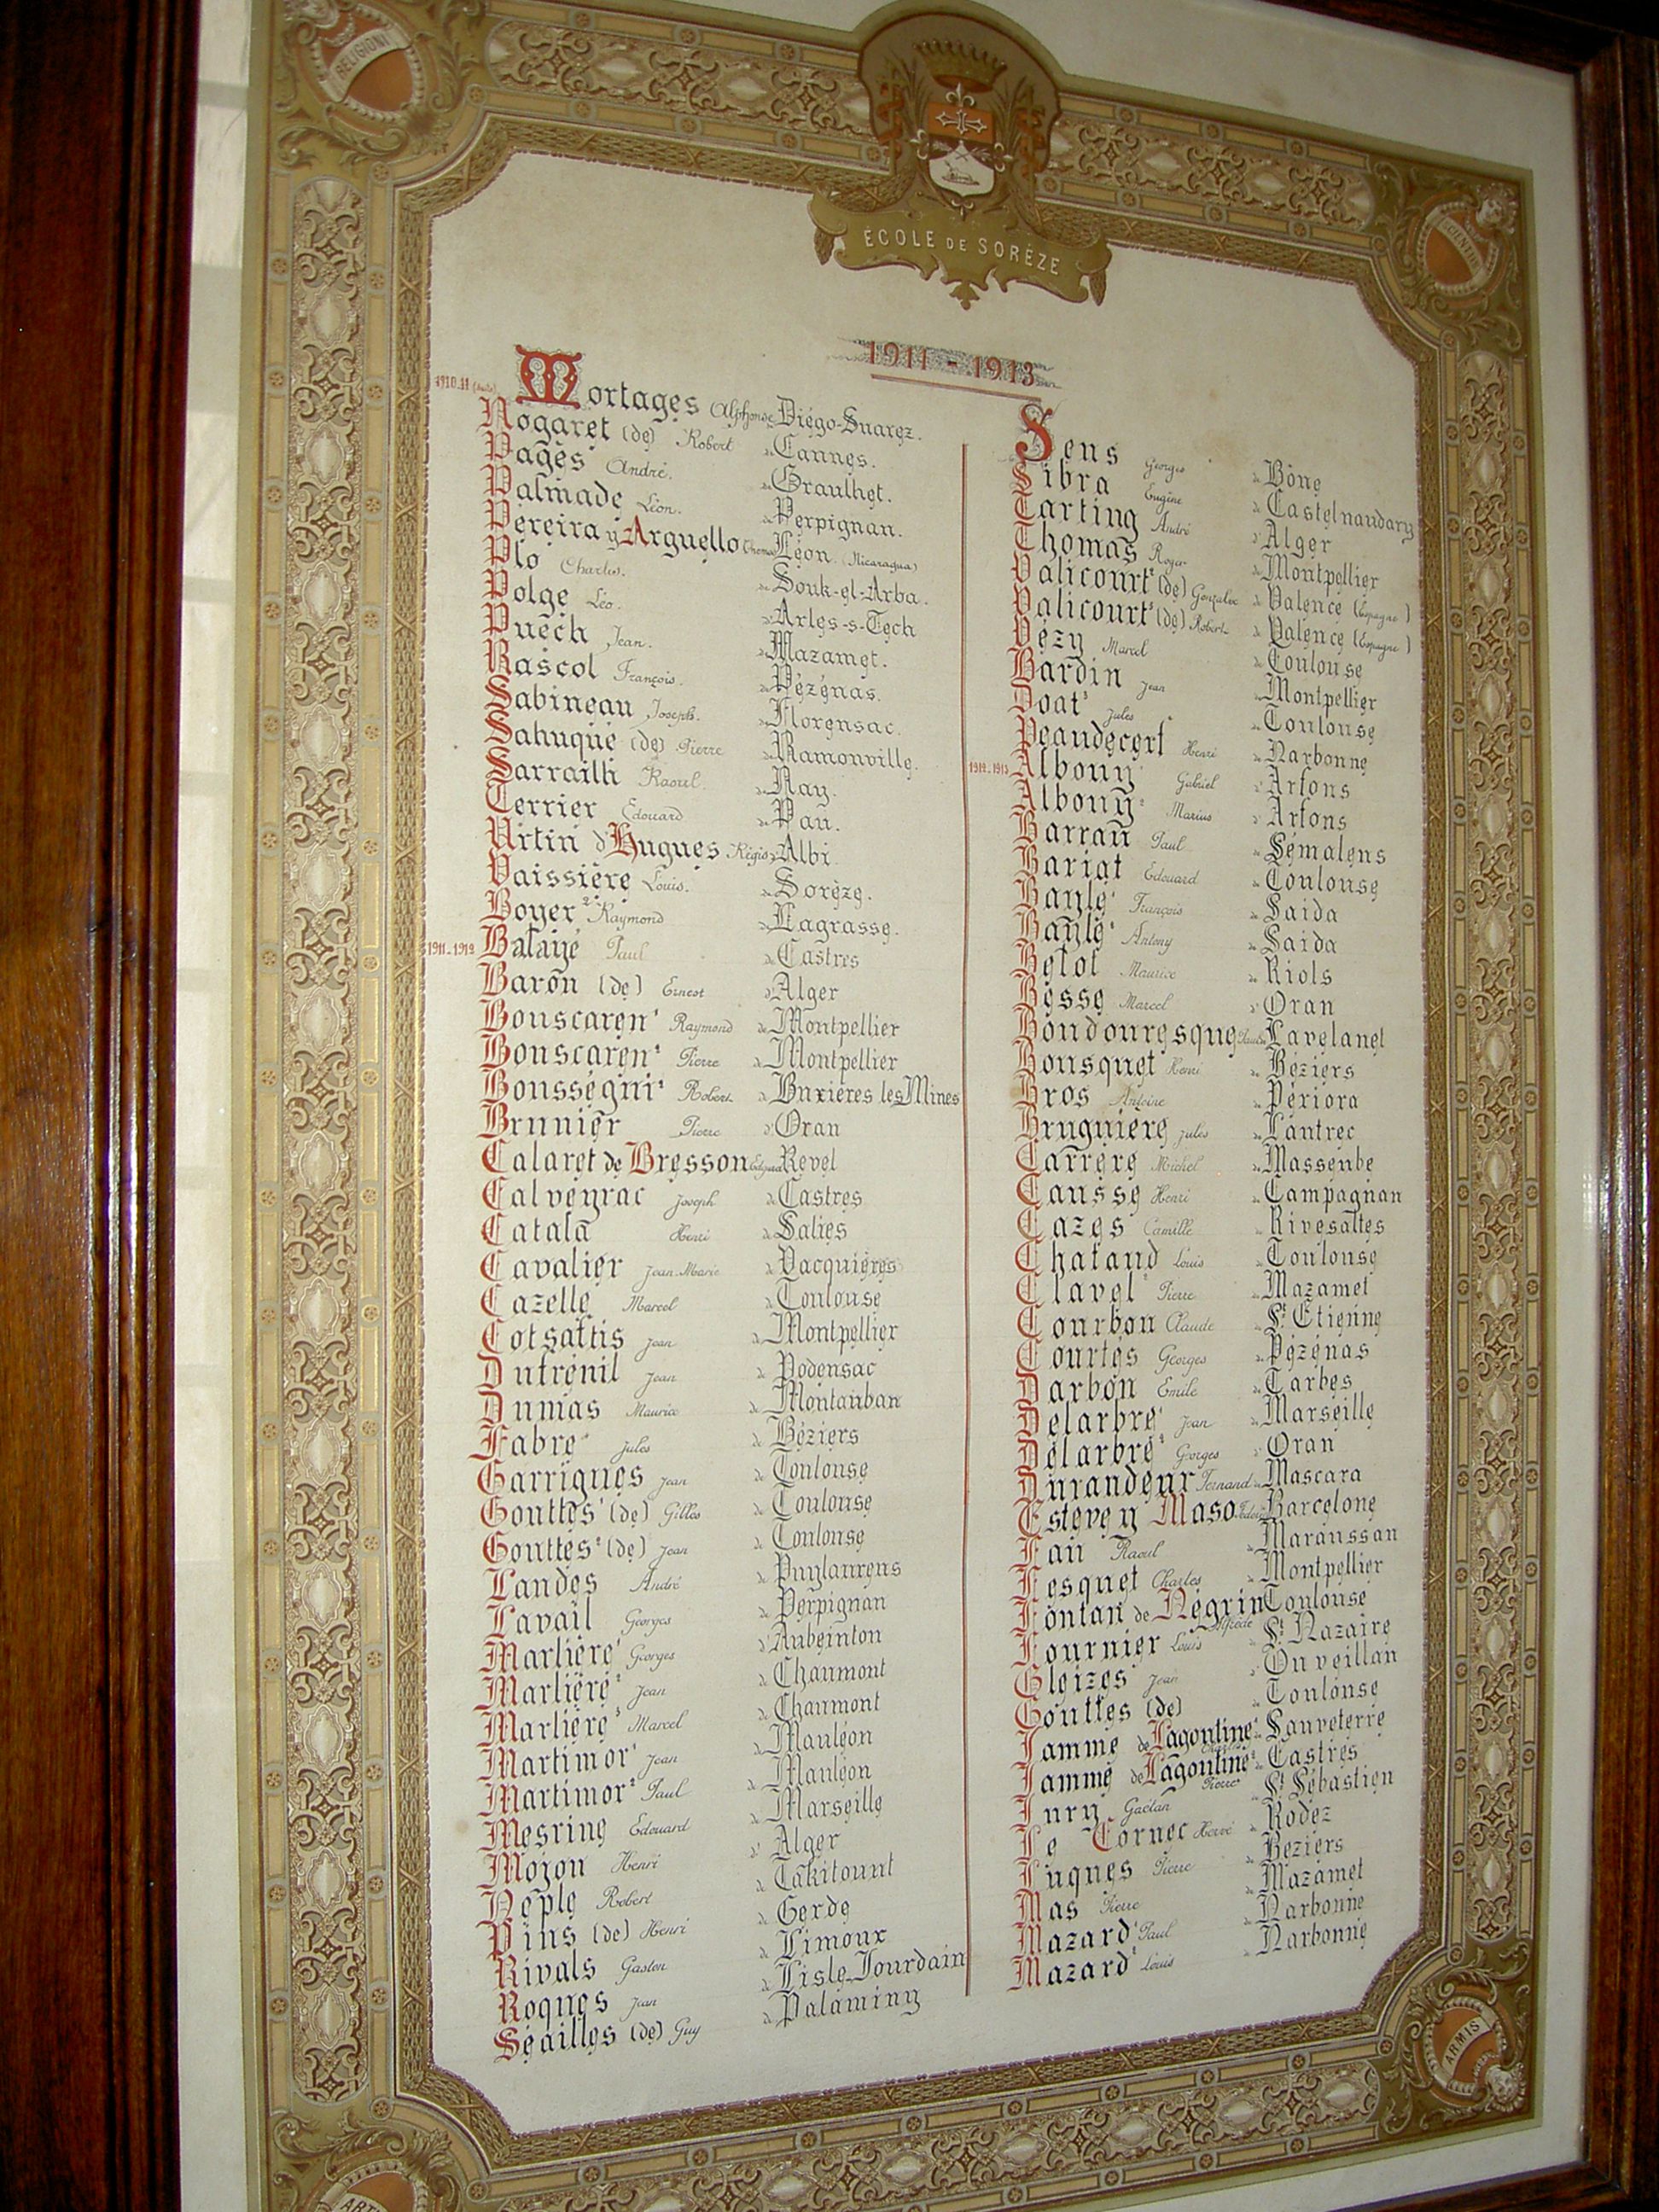 RELIGIONI
SCIENTIÆ
ÉCOLE DE SORÈZE
1911 - 1913
1910-11 (suite) Mortages Alphonse Diégo-Suarez.
Nogaret (de) Robert de Cannes.
Pagès André. de Graulhet.
Palmade Léon. de Perpignan.
Pereira y Arguello Léon (Nicaragua)
Plo Charles. de Souk-el-Arba.
Polge Léo. d'Arles-s-Tech
Puech Jean. de Mazamet.
Rascol François. de Pézénas.
Sabineau Joseph. de Florensac.
Sahuqué (de) Pierre de Ramonville.
Sarrailh Raoul. de Nay.
Terrier Edouard de Pau.
Urtin d'Hugues Régis d'Albi
Vaissière Louis. de Sorèze.
Boyer² Raymond de Lagrasse.
1911-1912 Balayé Paul de Castres
Baron (de) Ernest d'Alger
Bouscaren¹ Raymond de Montpellier
Bouscaren² Pierre de Montpellier
Boussegui¹ Robert de Buxières les Mines
Brunier Pierre d'Oran
Calaret de Bresson Revel
Calveyrac Joseph de Castres
Catala Henri de Salies
Cavalier Jean-Marie de Vacquières
Cazelle Marcel de Toulouse
Cotsaftis Jean de Montpellier
Dufrénil Jean de Podensac
Dumas Maurice de Montauban
Fabre Jules de Béziers
Garrigues Jean de Toulouse
Gouttes¹ (de) Gilles de Toulouse
Gouttes² (de) Jean de Toulouse
Landes André de Puylaurens
Lavail Georges de Perpignan
Marlière¹ Georges d'Aubeinton
Marlière² Jean de Chaumont
Marlière³ Marcel de Chaumont
Martimor¹ Jean de Mauléon
Martimor² Paul de Mauléon
Mesrine Edouard de Marseille
Mojon Henri d'Alger
Neple Robert de Takitount
Pins (de) Henri de Gerde
Rivals Gaston de Limoux
Roques Jean de Lisle-Jourdain
Séailles (de) Guy de Palaminy
Sens Georges de Bône
Sibra Eugène de Castelnaudary
Tarting André d'Alger
Thomas Roger de Montpellier
Valicourt² (de) Gonzalve de Valence (Espagne)
Valicourt³ (de) Robert de Valence (Espagne)
Vézy Marcel de Toulouse
Bardin Jean de Montpellier
Doat³ Jules de Toulouse
Peaudecerf Henri de Narbonne
1912-1913 Albouy¹ Gabriel d'Arfons
Albouy² Marius d'Arfons
Barrau Paul de Sémalens
Bariat Edouard de Toulouse
Bayle¹ François de Saida
Bayle² Antony de Saida
Belot Maurice de Riols
Besse Marcel d'Oran
Boudouresque Lavelanet
Bousquet Henri de Béziers
Bros Antoine de Périora
Bruguière Jules de Lautrec
Carrère Michel de Masseube
Causse Henri de Campagnan
Cazes Camille de Rivesaltes
Chataud Louis de Toulouse
Clavel² Pierre de Mazamet
Courbon Claude de St Etienne
Courtès Georges de Pézénas
Darbon Emile de Tarbes
Delarbre¹ Jean de Marseille
Delarbre² Georges d'Oran
Durandeur Fernand de Mascara
Esteve y Maso Barcelone
Fau Raoul de Maraussan
Fesquet Charles de Montpellier
Fontan de Négrin Alfrède Toulouse
Fournier Louis de St Nazaire
Gleizes Jean d'Ouveillan
Gouttes (de) de Toulouse
Jamme de Lagoutine¹ Charles de Sauveterre
Jamme de Lagoutine² Pierre de Castres
Jury Gaëtan de St Sébastien
Le Cornec Hervé de Rodez
Luques Pierre de Béziers
Mas Pierre de Mazamet
Mazard¹ Paul de Narbonne
Mazard² Louis de Narbonne
ARMIS